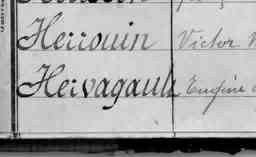 Herrouin Victor
Hervagault Eugène